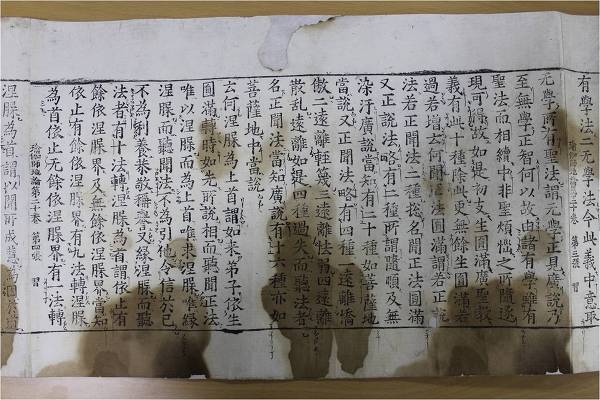 有學法二无學法今此義中意取
瑜伽師地論第二十卷 第三張 習
无學所有聖法謂无學正見廣說乃
至無學正智何以故由諸有學雖有
聖法而相續中非聖煩惱之所隨逐
現可得故如是初支生圓滿廣聖教
義有此十種除此更無餘生圓滿若
過若增云何聞正法圓滿謂若正說
法若正聞法二種捴名聞正法圓滿
又正說法略有二種所謂隨順及無
染汙廣說當知有二十種如菩薩地
當說又正聞法略有四種一遠離憍
傲二遠離輕篾三遠離怯弱四遠離
散亂遠離如是四種過失而聽法者
名正聞法當知廣說有十六種亦如
菩薩地中當說
云何涅槃為上首謂如來弟子依生
圓滿轉時如先所說相而聽聞正法
唯以涅槃而為上首唯求涅槃唯緣
涅槃而聽聞法不為引他令信於己
不為利養恭敬稱譽又緣涅槃而聽
法者有十法轉涅槃為首謂依止有
餘依涅槃界及無餘依涅槃界當知
依止有餘依涅槃界有九法轉涅槃
為首依止无餘依涅槃界有一法轉
瑜伽師地論第二十卷 第四張 習
涅槃為首謂以聞所成慧